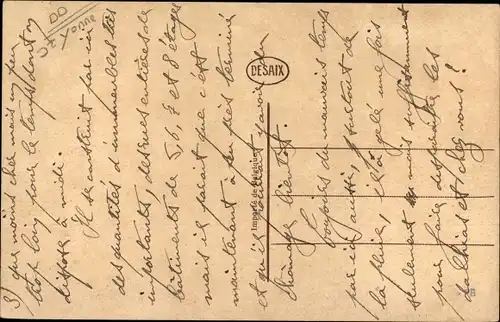 3) que moins cher mais un peu
trop loin pour le temps dont on
dispose à midi.
Il se construit par ici
des quantités d'immeubles très
importants, des rues entières de
bâtiments de 5, 6, 7 et 8 étages
mais il paraît que c'est
maintenant à peu près terminé
et qu'il y aurait
chômage bientôt.
Toujours du mauvais temps
par ici aussi, surtout de
la pluie, il a gelé une fois
seulement mais suffisamment
pour faire disparaître les
dahlias et chez vous !
DESAIX
Importé de Belgique
DD
St Yonne